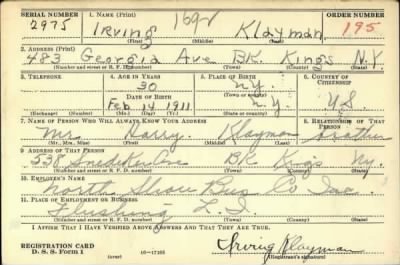 SERIAL NUMBER 1. NAME (Print) ORDER NUMBER
2975 Irving 1692 Klayman 195
(First) (Middle) (Last)
2. ADDRESS (Print)
483 Georgia Ave BK. Kings N.Y.
(Number and street or R. F. D. number) (Town) (County) (State)
3. TELEPHONE 4. AGE IN YEARS 5. PLACE OF BIRTH 6. COUNTRY OF CITIZENSHIP
30 N.Y.
DATE OF BIRTH (Town or county)
Feb 14 1911 N.Y. U.S.
(Exchange) (Number) (Mo.) (Day) (Yr.) (State or country)
7. NAME OF PERSON WHO WILL ALWAYS KNOW YOUR ADDRESS 8. RELATIONSHIP OF THAT PERSON
Mr. Harry Klayman brother
(Mr., Mrs., Miss) (First) (Middle) (Last)
9. ADDRESS OF THAT PERSON
538 Snediker Ave BK Kings N.Y.
(Number and street or R. F. D. number) (Town) (County) (State)
10. EMPLOYER'S NAME
North Shore Bus Co Inc.
11. PLACE OF EMPLOYMENT OR BUSINESS
Flushing L. I.
(Number and street or R. F. D. number) (Town) (County) (State)
I AFFIRM THAT I HAVE VERIFIED ABOVE ANSWERS AND THAT THEY ARE TRUE.
REGISTRATION CARD
D. S. S. Form 1 (over) Irving Klayman
(Registrant's signature)